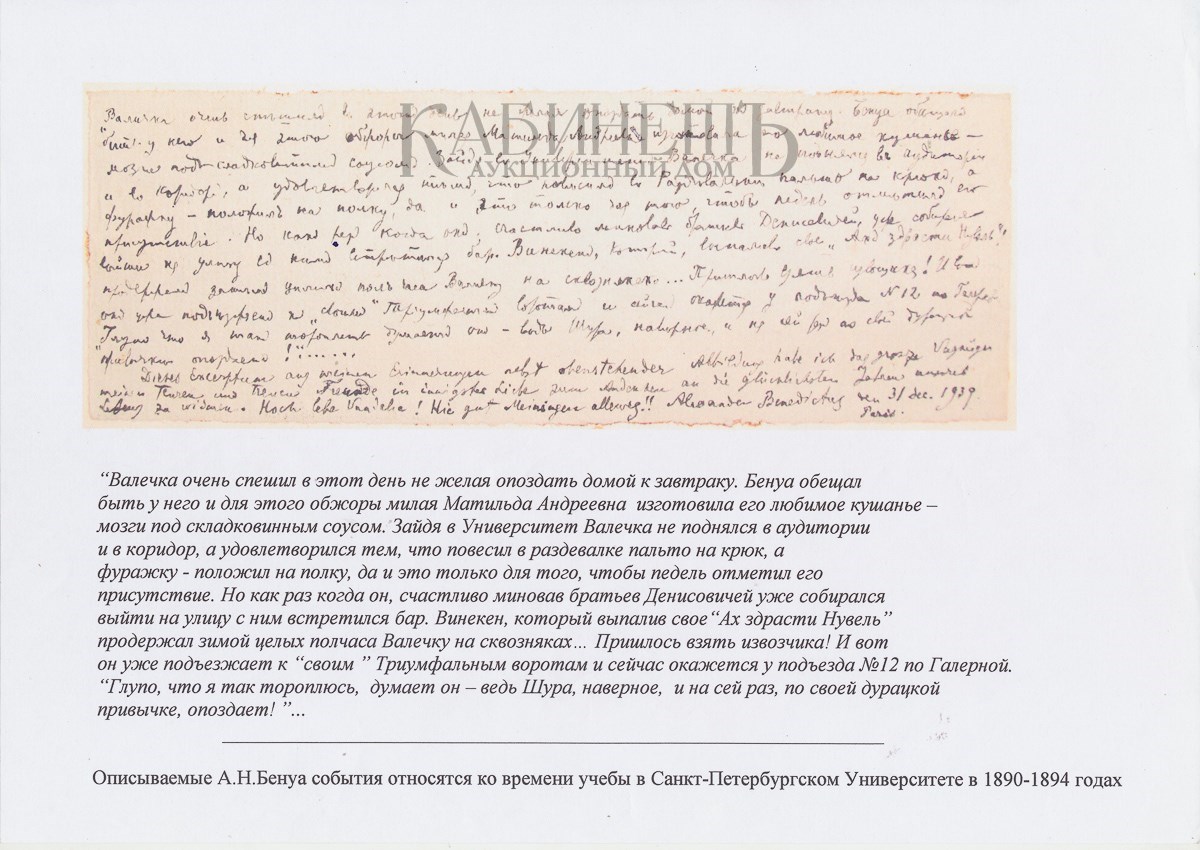 Валечка очень спешилъ въ этотъ день не желая опоздать домой къ завтраку. Бенуа обещалъ
быть у него и для этого обжоры милая Матильда Андреевна изготовила его любимое кушанье –
мозги подъ сладковатымъ соусомъ. Зайдя въ Университетъ Валечка не поднялся въ аудиторіи
и въ коридоръ, а удовлетворился тѣмъ, что повѣсилъ въ Раздѣвальнѣ пальто на крюкъ, а
фуражку – положилъ на полку, да и это только для того, чтобы педель отмѣтилъ его
присутствіе. Но какъ разъ когда онъ, счастливо миновавъ братьевъ Денисовичей, уже собирался
выйти на улицу съ нимъ встрѣтился бар. Винекенъ, который, выпаливъ свое „Ахъ здрасти Нувель"!
на сквозняках... Пришлось взять извощика! И вотъ
онъ уже подъѣзжаетъ къ „своимъ" Тріумфальнымъ воротамъ и сейчасъ окажется у подъѣзда №12 по Галерной
"Глупо что я такъ тороплюсь думаетъ онъ – ведь Шура, навѣрное, и на сей разъ по своей дурацкой
привычкѣ опоздаетъ!"......
Dieses Excerptum aus meinen Erinnerungen nebst obenstehender Abbildung habe ich das grosse Vergnügen
meinem teuren und treuen Freunde in innigster Liebe zum Andenken an die glücklichsten Jahren unseres
Lebens zu widmen. Hoch lebe Vualetschka! Hie gut Meiningen alleweg!! Alexander Benedictus den 31 dec. 1939.
Paris.
КАБИНЕТЪ
АУКЦИОННЫЙ ДОМ
“Валечка очень спешил в этот день не желая опоздать домой к завтраку. Бенуа обещал
быть у него и для этого обжоры милая Матильда Андреевна изготовила его любимое кушанье –
мозги под складковинным соусом. Зайдя в Университет Валечка не поднялся в аудитории
и в коридор, а удовлетворился тем, что повесил в раздевалке пальто на крюк, а
фуражку - положил на полку, да и это только для того, чтобы педель отметил его
присутствие. Но как раз когда он, счастливо миновав братьев Денисовичей уже собирался
выйти на улицу с ним встретился бар. Винекен, который выпалив свое“Ах здрасти Нувель”
продержал зимой целых полчаса Валечку на сквозняках… Пришлось взять извозчика! И вот
он уже подъезжает к “своим ” Триумфальным воротам и сейчас окажется у подъезда №12 по Галерной.
“Глупо, что я так тороплюсь, думает он – ведь Шура, наверное, и на сей раз, по своей дурацкой
привычке, опоздает! ”...
Описываемые А.Н.Бенуа события относятся ко времени учебы в Санкт-Петербургском Университете в 1890-1894 годах